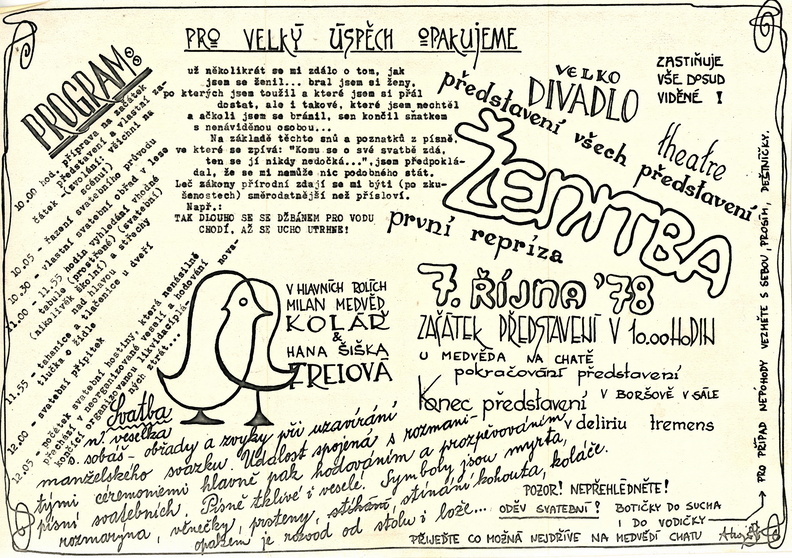 PRO VELKÝ ÚSPĚCH OPAKUJEME
PROGRAM:
10.00 hod. příprava na začátek
představení a vlastní za-
čátek -(svolání: všichni na
scénu!)
10.05 - řazení svatebního průvodu
10.30 - vlastní svatební obřad v lese
11.00 - 11.55 hodin vyhledání vhodné
tabule (prostřené) (svatební)
(nikolivěk školní) a střechy
nad hlavou
11.55 - tahanice a tlačenice u dveří
tlučka o židle
12.00 - svatební přípitek
12.05 - počátek svatební hostiny, která nenásilně
přechází v neorganizované veselí a hodování
končící organizovanou likvidací
už několikrát se mi zdálo o tom, jak
jsem se ženil... bral jsem si ženy,
po kterých jsem toužil a které jsem si přál
dostat, ale i takové, které jsem nechtěl
a ačkoli jsem se bránil, sen končil sňatkem
s nenáviděnou osobou...
Na základě těchto snů a poznatků z písně,
ve které se zpívá: "Komu se o své svatbě zdá,
ten se jí nikdy nedočká...", jsem předpoklá-
dal, že se mi nemůže nic podobného stát.
Leč zákony přírodní zdají se mi býti (po zku-
ženostech) směrodatnější než přísloví.
Např.:
TAK DLOUHO SE SE DŽBÁNEM PRO VODU
CHODÍ, AŽ SE UCHO UTRHNE!
VELKO
DIVADLO
představení všech představení
theatre
ZASTIŇUJE
VŠE DOSUD
VIDĚNÉ !
ŽENITBA
první repríza
7. ŘÍJNA '78
ZAŠÁTEK PŘEDSTAVENÍ V 10.00 HODIN
U MEDVĚDA NA CHATĚ
pokračování představení
V BORŠOVĚ V SÁLE
Konec představení
v deliriu tremens
V HLAVNÍCH ROLÍCH
MILAN MEDVĚD
KOLÁŘ
&
HANA ŠIŠKA
ZREIOVÁ
Svatba
n. veselka
s. sobáš - obřady a zvyky při uzavírání
manželského svazku. Událost spojená s rozmani-
tými ceremoniemi hlavně pak hodováním a prozpěvováním
písní svatebních. Písně tklivé i veselé. Symboly jsou myrta,
rozmarýna, věnečky, prsteny, stínání kohouta, koláče.
opakem je rozvod od stolu i lože...
POZOR! NEPŘEHLÉDNĚTE!
ODĚV SVATEBNÍ! BOTIČKY DO SUCHA
I DO VODIČKY
PŘIJEĎTE CO MOŽNÁ NEJDŘÍVE NA MEDVĚDÍ CHATU
PRO PŘÍPAD NEPOHODY VEZMĚTE S SEBOU, PROSÍM, DEŠTNÍČKY.